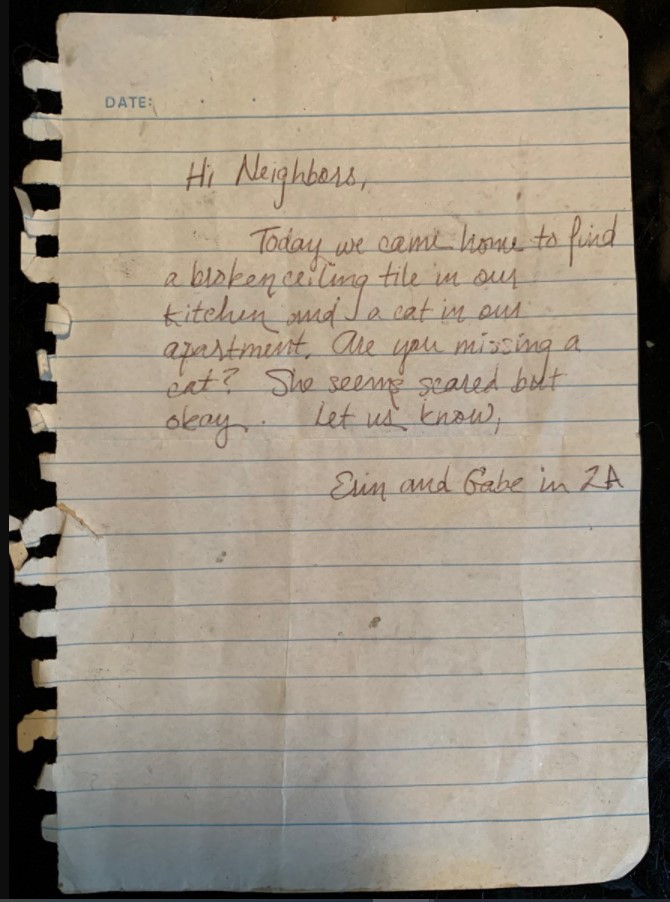 DATE:
Hi Neighbors,
Today we came home to find
a broken ceiling tile in our
kitchen and a cat in our
apartment. Are you missing a
cat? She seems scared but
okay. Let us know,
Erin and Gabe in 2A